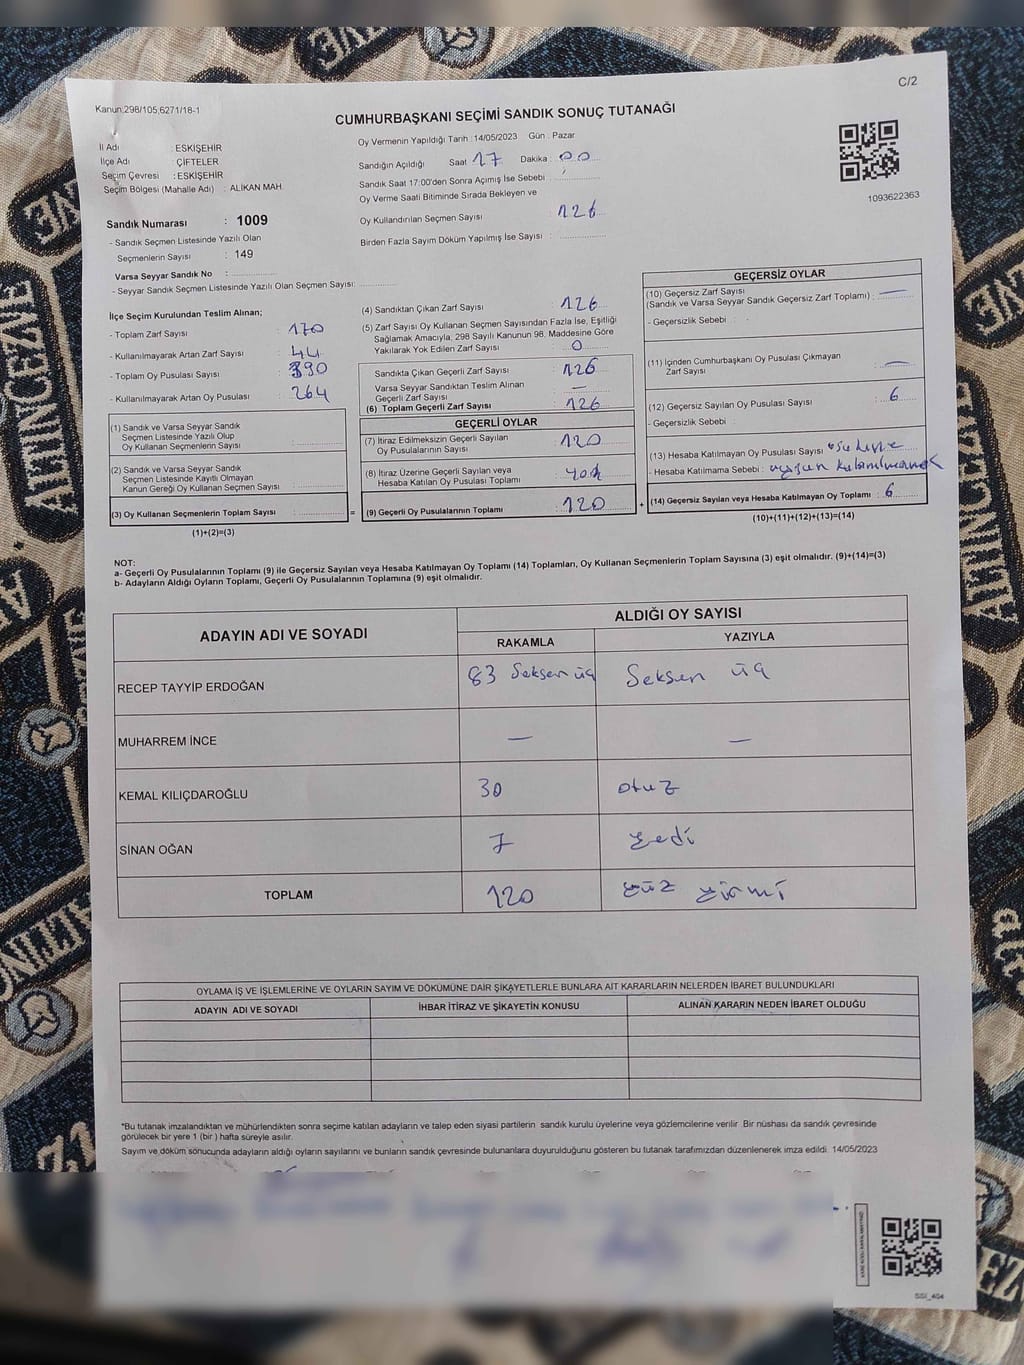 C/2
Kanun:298/105;6271/18-1
CUMHURBAŞKANI SEÇİMİ SANDIK SONUÇ TUTANAĞI
İl Adı : ESKİŞEHİR
İlçe Adı : ÇİFTELER
Seçim Çevresi : ESKİŞEHİR
Seçim Bölgesi (Mahalle Adı) : ALİKAN MAH.
Sandık Numarası : 1009
- Sandık Seçmen Listesinde Yazılı Olan
Seçmenlerin Sayısı : 149
Varsa Seyyar Sandık No :
- Seyyar Sandık Seçmen Listesinde Yazılı Olan Seçmen Sayısı:
Oy Vermenin Yapıldığı Tarih : 14/05/2023 Gün : Pazar
Sandığın Açıldığı Saat 17 Dakika : 00
Sandık Saat 17:00'den Sonra Açımış İse Sebebi :
Oy Verme Saati Bitiminde Sırada Bekleyen ve
Oy Kullandırılan Seçmen Sayısı : 126
Birden Fazla Sayım Döküm Yapılmış İse Sayısı :
1093622363
İlçe Seçim Kurulundan Teslim Alınan;
- Toplam Zarf Sayısı : 170
- Kullanılmayarak Artan Zarf Sayısı : 44
- Toplam Oy Pusulası Sayısı : 390
- Kullanılmayarak Artan Oy Pusulası : 264
(1) Sandık ve Varsa Seyyar Sandık
Seçmen Listesinde Yazılı Olup
Oy Kullanan Seçmenlerin Sayısı :
(2) Sandık ve Varsa Seyyar Sandık
Seçmen Listesinde Kayıtlı Olmayan
Kanun Gereği Oy Kullanan Seçmen Sayısı :
(3) Oy Kullanan Seçmenlerin Toplam Sayısı : =
(1)+(2)=(3)
(4) Sandıktan Çıkan Zarf Sayısı : 126
(5) Zarf Sayısı Oy Kullanan Seçmen Sayısından Fazla İse, Eşitliği
Sağlamak Amacıyla; 298 Sayılı Kanunun 98. Maddesine Göre
Yakılarak Yok Edilen Zarf Sayısı : 0
Sandıkta Çıkan Geçerli Zarf Sayısı : 126
Varsa Seyyar Sandıktan Teslim Alınan
Geçerli Zarf Sayısı : —
(6) Toplam Geçerli Zarf Sayısı : 126
GEÇERLİ OYLAR
(7) İtiraz Edilmeksizin Geçerli Sayılan
Oy Pusulasının Sayısı : 120
(8) İtiraz Üzerine Geçerli Sayılan veya
Hesaba Katılan Oy Pusulası Toplamı : yok
(9) Geçerli Oy Pusulalarının Toplamı : 120 +
GEÇERSİZ OYLAR
(10) Geçersiz Zarf Sayısı
(Sandık ve Varsa Seyyar Sandık Geçersiz Zarf Toplamı) : —
- Geçersizlik Sebebi :
(11) İçinden Cumhurbaşkanı Oy Pusulası Çıkmayan
Zarf Sayısı : —
(12) Geçersiz Sayılan Oy Pusulası Sayısı : 6
- Geçersizlik Sebebi :
(13) Hesaba Katılmayan Oy Pusulası Sayısı :
- Hesaba Katılmama Sebebi : uygun
(14) Geçersiz Sayılan veya Hesaba Katılmayan Oy Toplamı : 6
(10)+(11)+(12)+(13)=(14)
NOT:
a- Geçerli Oy Pusulalarının Toplamı (9) ile Geçersiz Sayılan veya Hesaba Katılmayan Oy Toplamı (14) Toplamları, Oy Kullanan Seçmenlerin Toplam Sayısına (3) eşit olmalıdır. (9)+(14)=(3)
b- Adayların Aldığı Oyların Toplamı, Geçerli Oy Pusulalarının Toplamına (9) eşit olmalıdır.
ADAYIN ADI VE SOYADI ALDIĞI OY SAYISI
RAKAMLA YAZIYLA
RECEP TAYYİP ERDOĞAN 83 Seksen üç Seksen üç
MUHARREM İNCE — —
KEMAL KILIÇDAROĞLU 30 otuz
SİNAN OĞAN 7 yedi
TOPLAM 120 yüz yirmi
OYLAMA İŞ VE İŞLEMLERİNE VE OYLARIN SAYIM VE DÖKÜMÜNE DAİR ŞİKAYETLERLE BUNLARA AİT KARARLARIN NELERDEN İBARET BULUNDUKLARI
ADAYIN ADI VE SOYADI İHBAR İTİRAZ VE ŞİKAYETİN KONUSU ALINAN KARARIN NEDEN İBARET OLDUĞU
*Bu tutanak imzalandıktan ve mühürlendikten sonra seçime katılan adayların ve talep eden siyasi partilerin sandık kurulu üyelerine veya gözlemcilerine verilir. Bir nüshası da sandık çevresinde
görülecek bir yere 1 (bir ) hafta süreyle asılır.
Sayım ve döküm sonucunda adayların aldığı oyların sayılarını ve bunların sandık çevresinde bulunanlara duyurulduğunu gösteren bu tutanak tarafımızdan düzenlenerek imza edildi. 14/05/2023
SSI_404
ALTINCEZVE